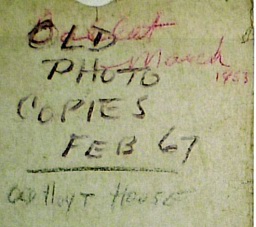 OLD
March
PHOTO
1953
COPIES
FEB 67
Hoyt House